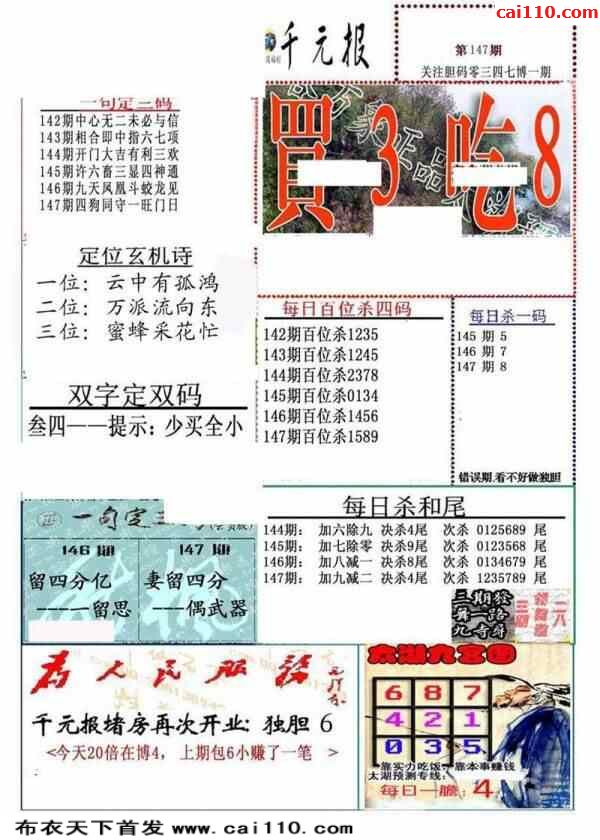 cai110.com
千元报
第147期
关注胆码零三四七博一期
一句定三码
142期中心无二未必与信
143期相合即中指六七项
144期开门大吉有利三欢
145期许六畜三显四神通
146期九天凤凰斗蛟龙见
147期四狗同守一旺门日
買3吃8
定位玄机诗
一位：云中有孤鸿
二位：万派流向东
三位：蜜蜂采花忙
双字定双码
叁四——提示：少买全小
每日百位杀四码
142期百位杀1235
143期百位杀1245
144期百位杀2378
145期百位杀0134
146期百位杀1456
147期百位杀1589
每日杀一码
145期 5
146期 7
147期 8
错误期.看不好做独胆
一句定三
146期
留四分亿
——留思
147期
妻留四分
——偶武器
每日杀和尾
144期： 加六除九 决杀4尾 次杀 0125689 尾
145期： 加七除零 决杀9尾 次杀 0123568 尾
146期： 加八减一 决杀8尾 次杀 0134679 尾
147期： 加九减二 决杀4尾 次杀 1235789 尾
为人民服务
千元报堵房再次开业：独胆 6
<今天20倍在博4，上期包6小赚了一笔 >
太湖九宫图
6 8 7
4 2 1
0 3 5
靠实力吃饭，靠本事赚钱
太湖预测专线：
每日一胆：4
布衣天下首发 www.cai110.com